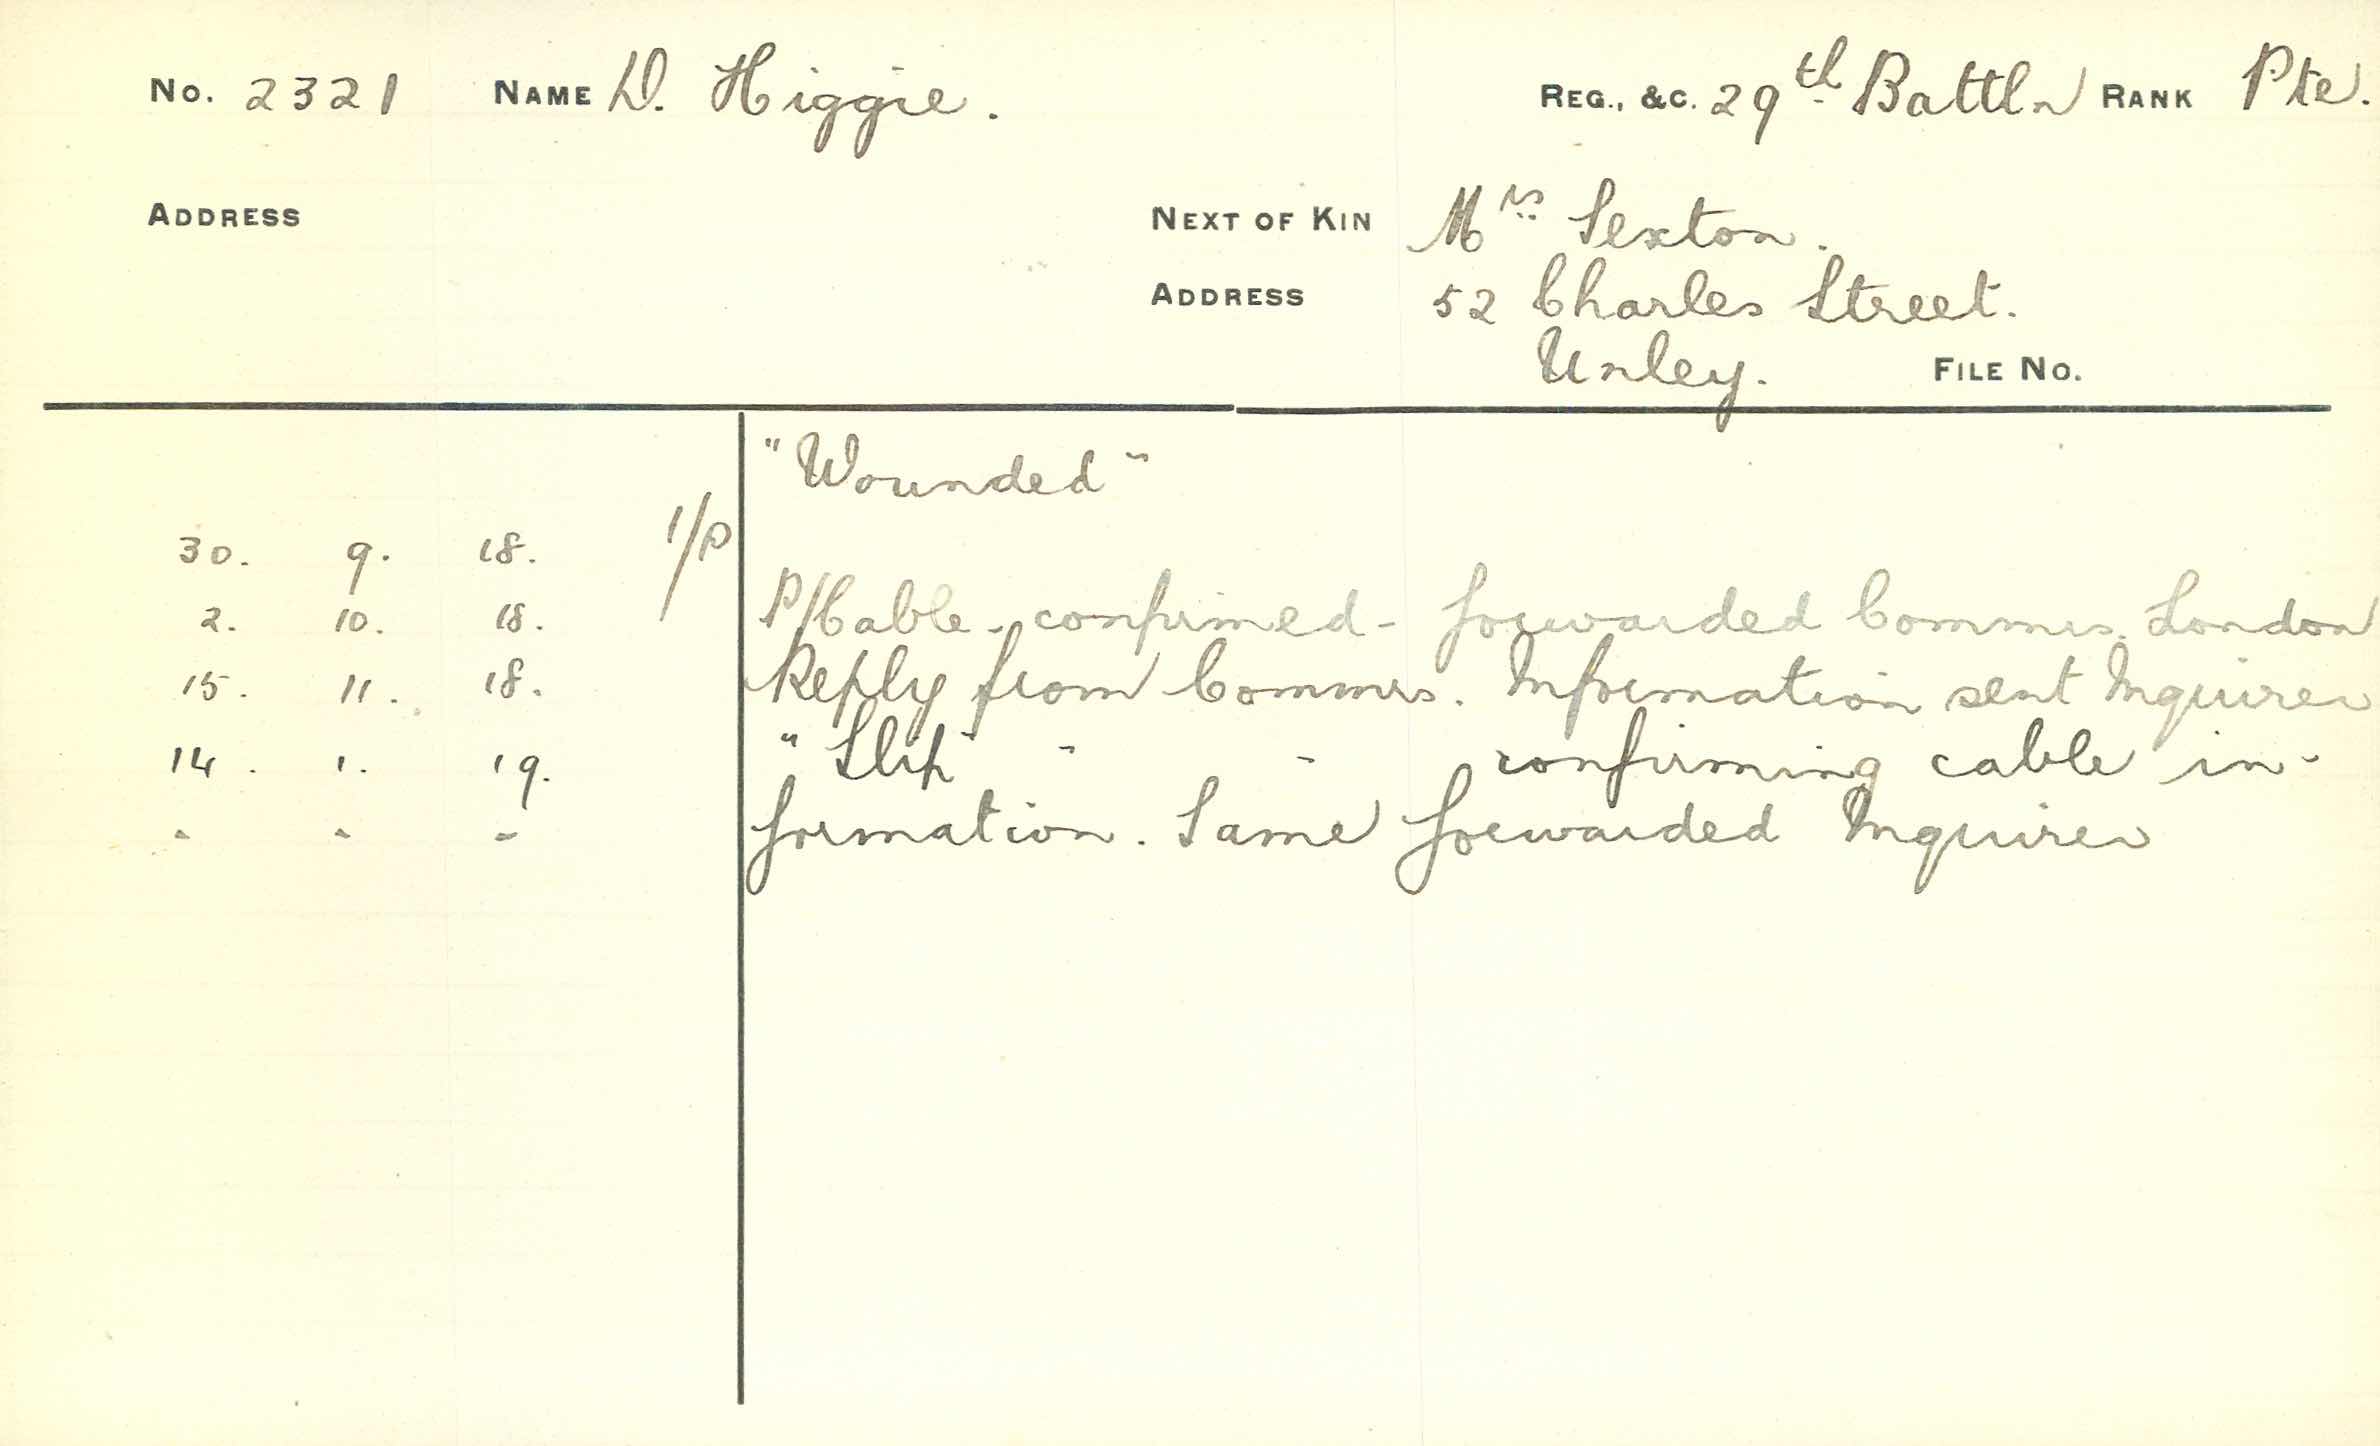 No. 2321 NAME D. Higgie. REG., &C. 29th Battln RANK Pte.
ADDRESS NEXT OF KIN Mrs Sexton.
ADDRESS 52 Charles Street.
Unley. FILE NO.
"Wounded"
30. 9. 18. 1/P
2. 10. 18. P/Cable - confirmed - forwarded Commrs. London
15. 11. 18. Reply from Commrs. Information sent Inquirer
14. 1. 19. " Slip " " confirming cable in-
" " " formation. Same forwarded Inquirer